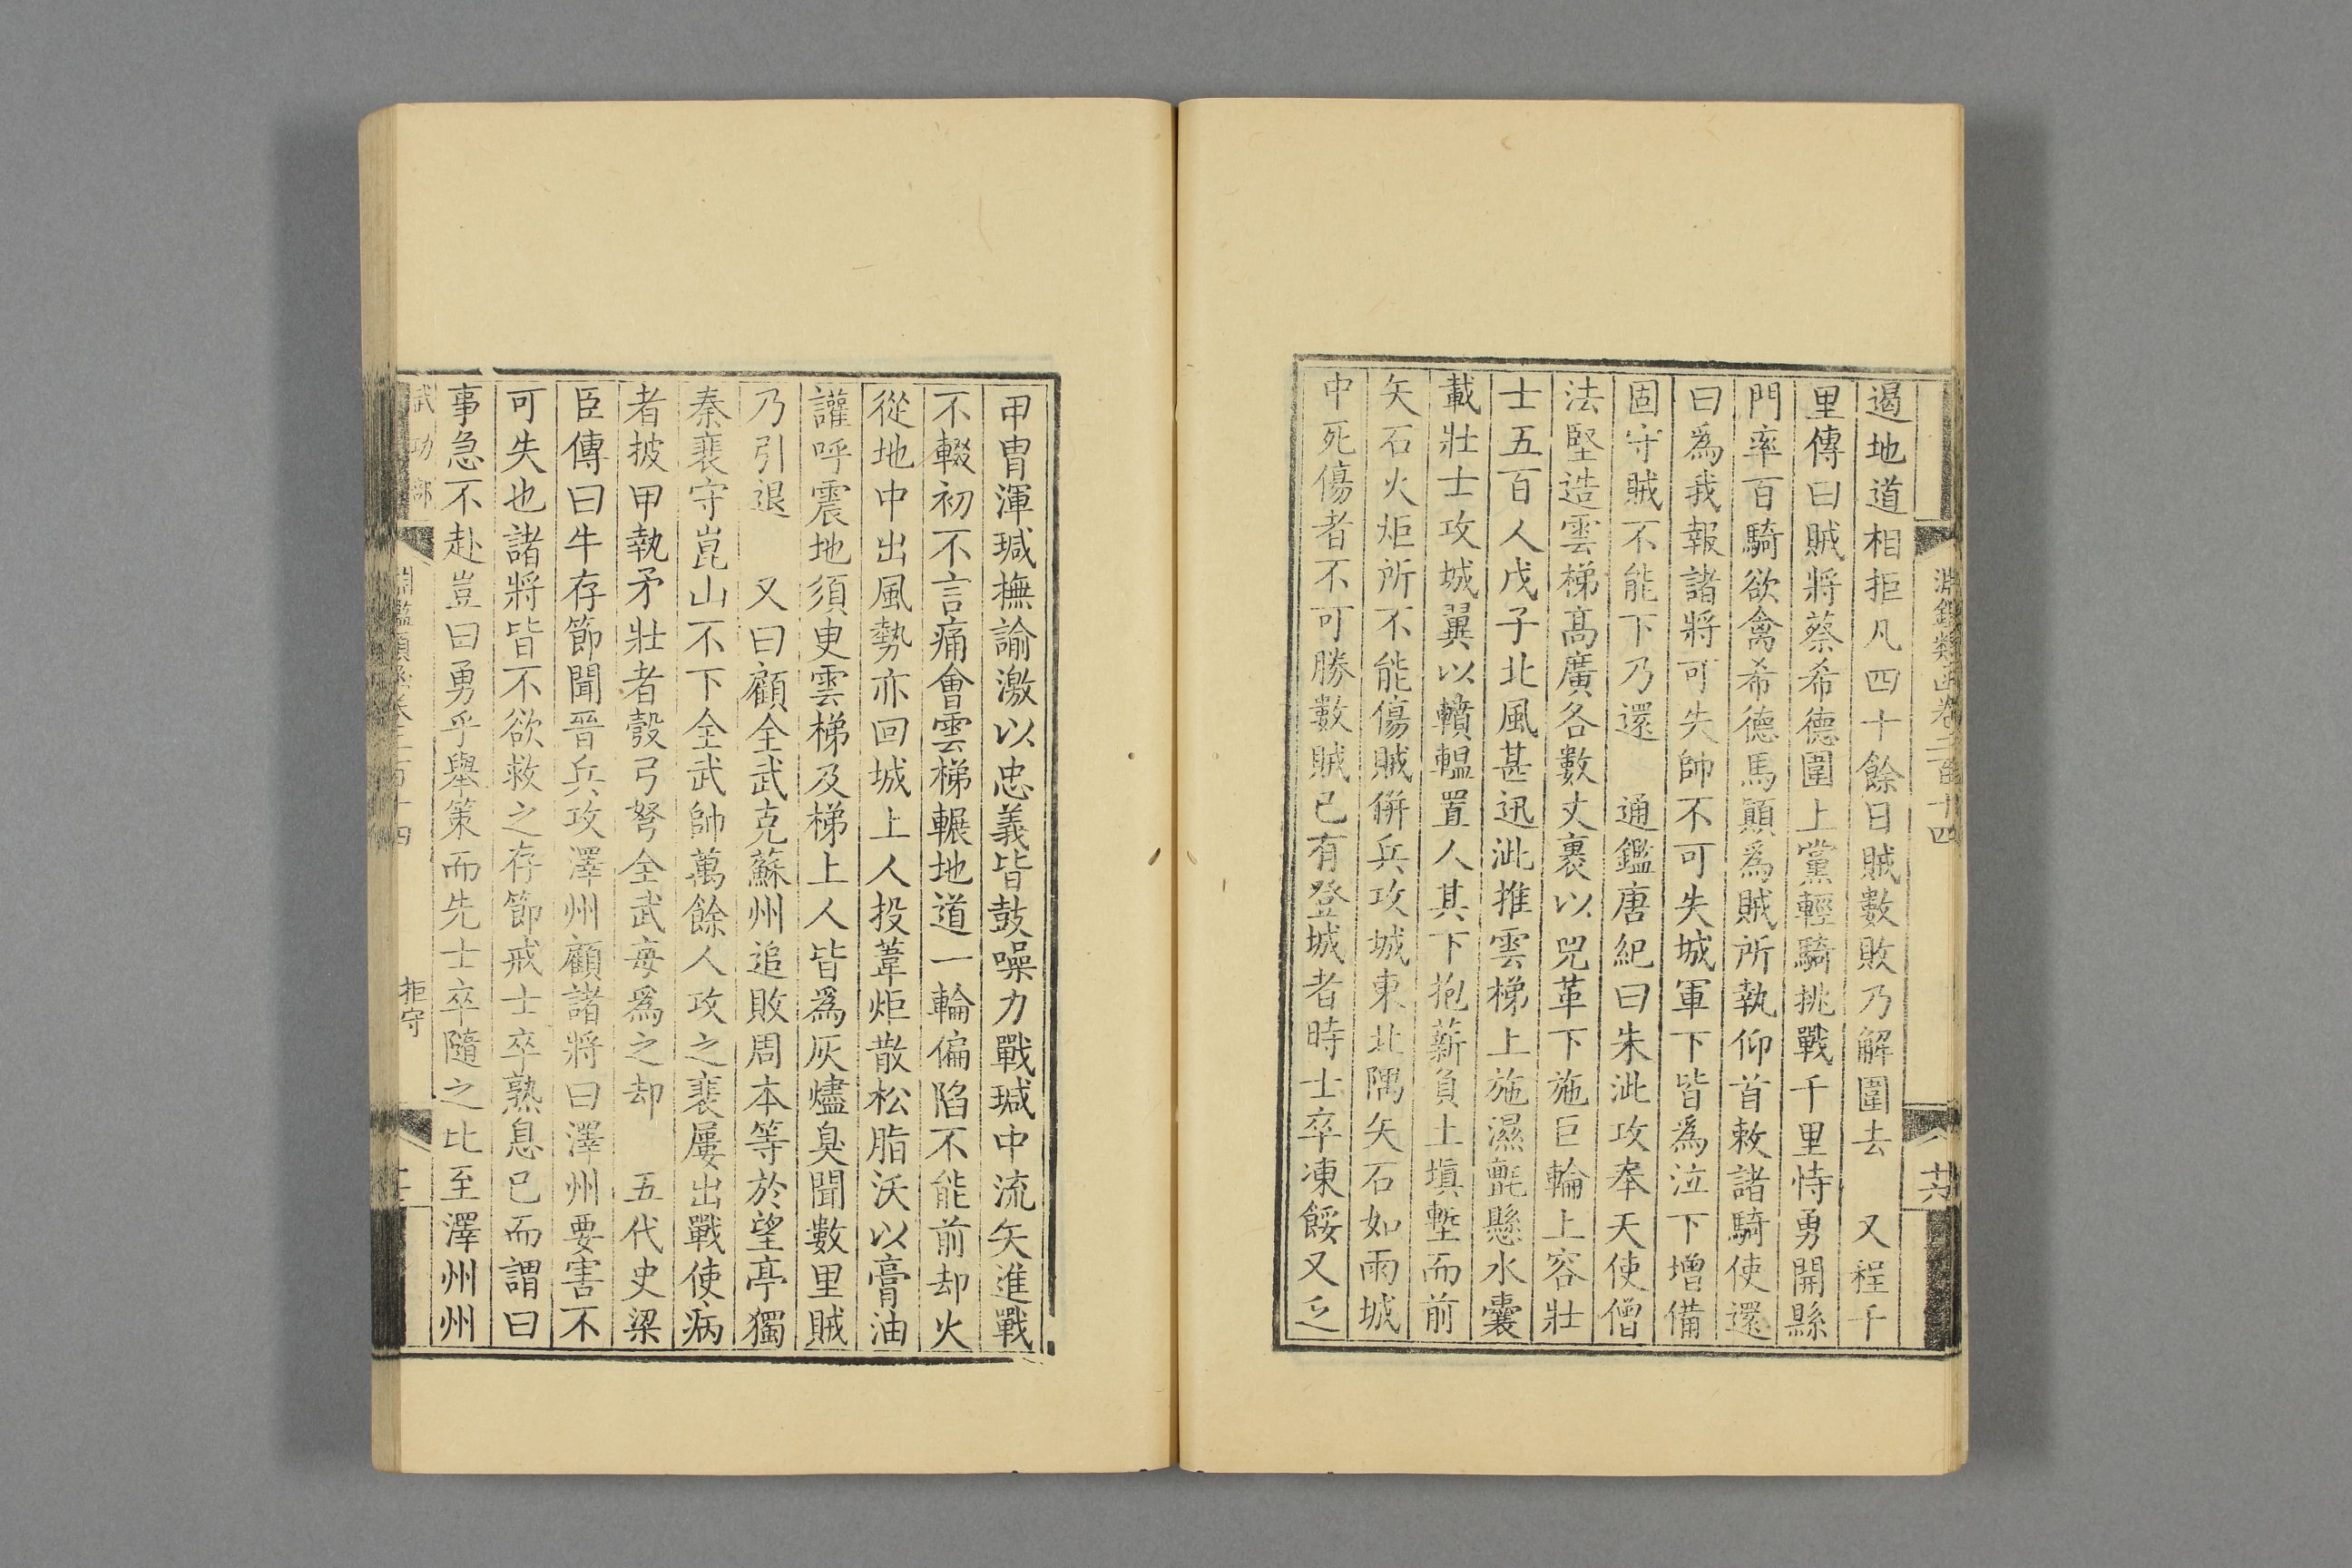 淵鑑類函卷二百十四
廿六
遏地道相拒凡四十餘日賊數敗乃解圍去　又程千
里傳曰賊將蔡希德圍上黨輕騎挑戰千里恃勇開縣
門率百騎欲禽希德馬顛爲賊所執仰首敕諸騎使還
曰爲我報諸將可失帥不可失城軍下皆爲泣下增備
固守賊不能下乃還　通鑑唐紀曰朱泚攻奉天使僧
法堅造雲梯高廣各數丈裹以兕革下施巨輪上容壯
士五百人戊子北風甚迅泚推雲梯上施濕氈懸水囊
載壯士攻城翼以轒轀置人其下抱薪負土塡塹而前
矢石火炬所不能傷賊倂兵攻城東北隅矢石如雨城
中死傷者不可勝數賊已有登城者時士卒凍餒又乏
甲冑渾瑊撫諭激以忠義皆鼓噪力戰瑊中流矢進戰
不輟初不言痛會雲梯輾地道一輪偏陷不能前却火
從地中出風勢亦回城上人投葦炬散松脂沃以膏油
讙呼震地須臾雲梯及梯上人皆爲灰燼臭聞數里賊
乃引退　又曰顧全武克蘇州追敗周本等於望亭獨
秦裴守崑山不下全武帥萬餘人攻之裴屢出戰使病
者披甲執矛壯者彀弓弩全武每爲之却　五代史梁
臣傳曰牛存節聞晉兵攻澤州顧諸將曰澤州要害不
可失也諸將皆不欲救之存節戒士卒熟息已而謂曰
事急不赴豈曰勇乎舉策而先士卒隨之比至澤州州
武功部
淵鑑類函卷二百十四
拒守